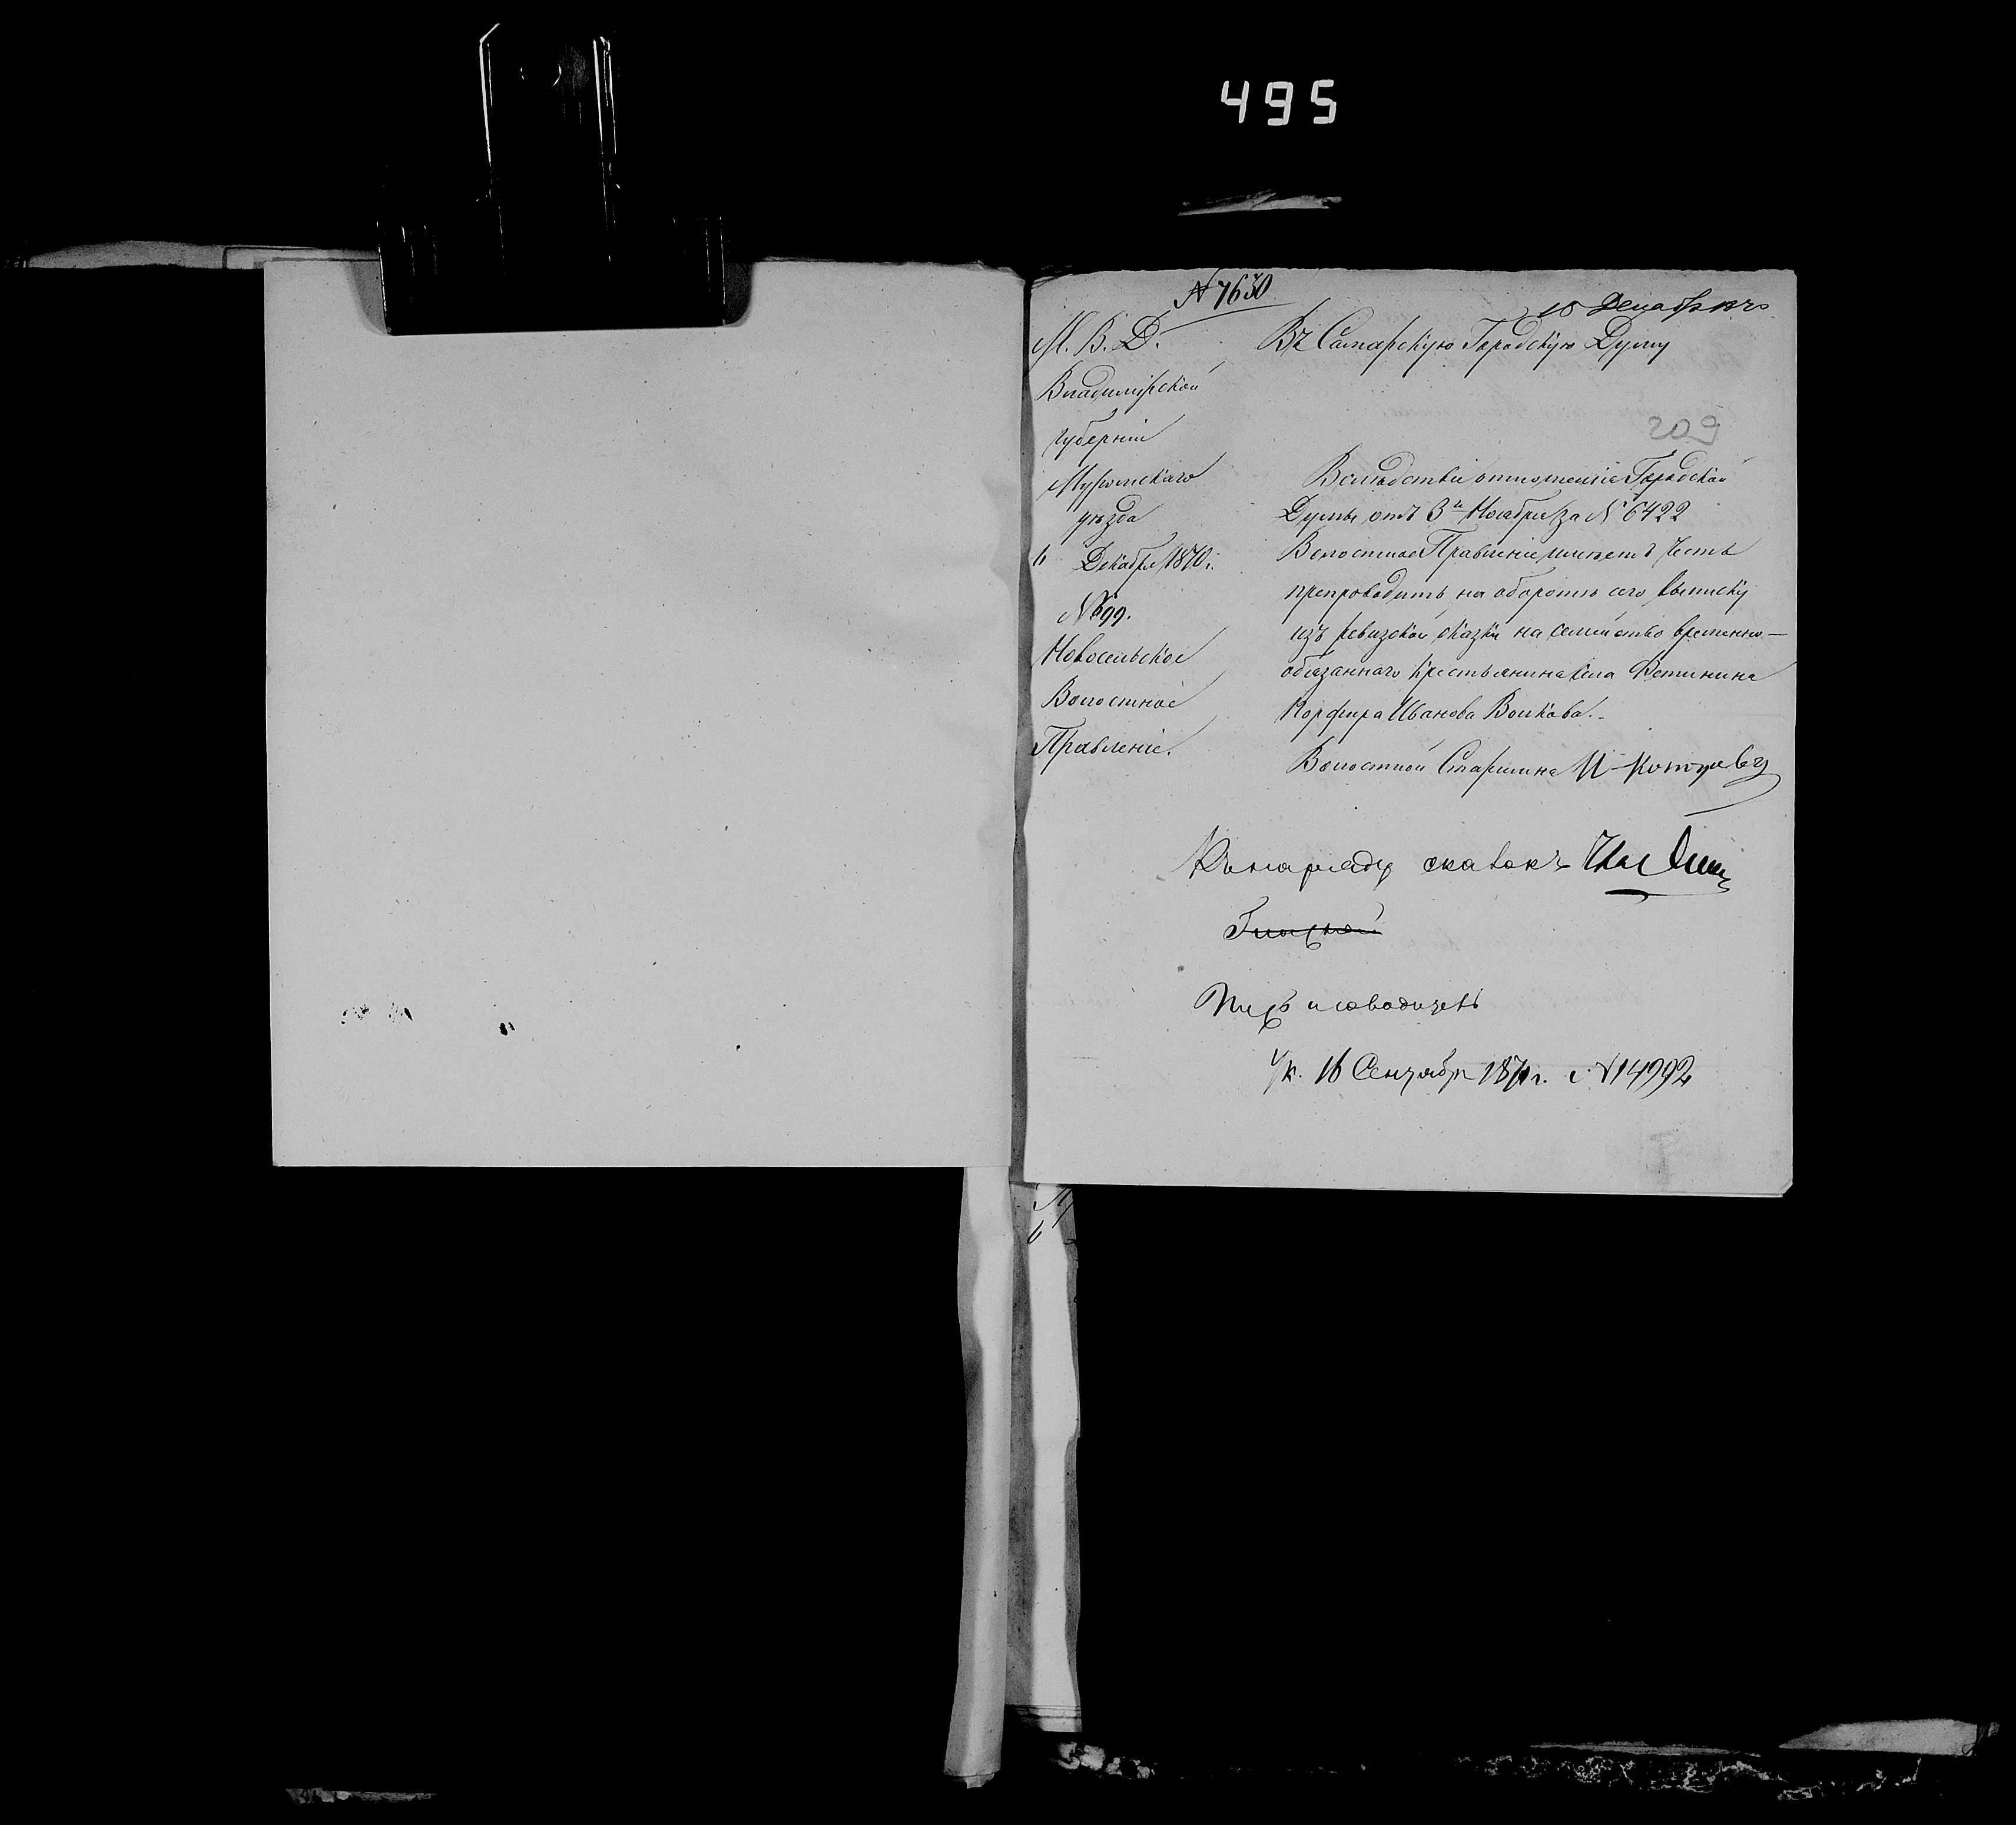 495
N 7630
15 Декабря
М. В. Д.
Владимірской
губерніи
Муромскаго
уѣзда
6 Декабря 1870 г.
№ 699.
Новосельское
Волостное
Правленіе.
Въ Самарскую Городскую Думу
209
Вслѣдствіе отношенія Городской
Думы отъ 3й Ноября за № 6422
Волостное Правленіе имѣетъ честь
препроводить на оборотѣ сего выписку
изъ ревизской сказки на семейство временно-
обязаннаго крестьянина села Вотинина
Порфира Иванова Волкова.
Волостной Старшина И
Къ наряду сказокъ
Ук. 16 Сентября 1871 г. N 14992